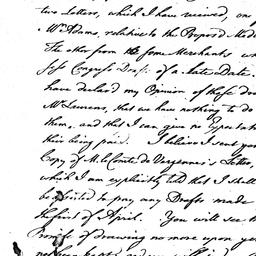 two Letters, which I have received, one
Mr. Adams, relative to the Proposed
The other from the some Merchants who
Congress Drafts of a late Date.
have declar'd my Opinion of those
Mr. Laurens, that we have nothing to do
them, and that I can give no Expectation
their being paid. I believe I sent you
Copy of M. le Comte de Vergennes's Letter,
which I am explicitly told that I shall
be assisted to pay any Drafts made
the first of April. You will see the
Promise of drawing no more upon you